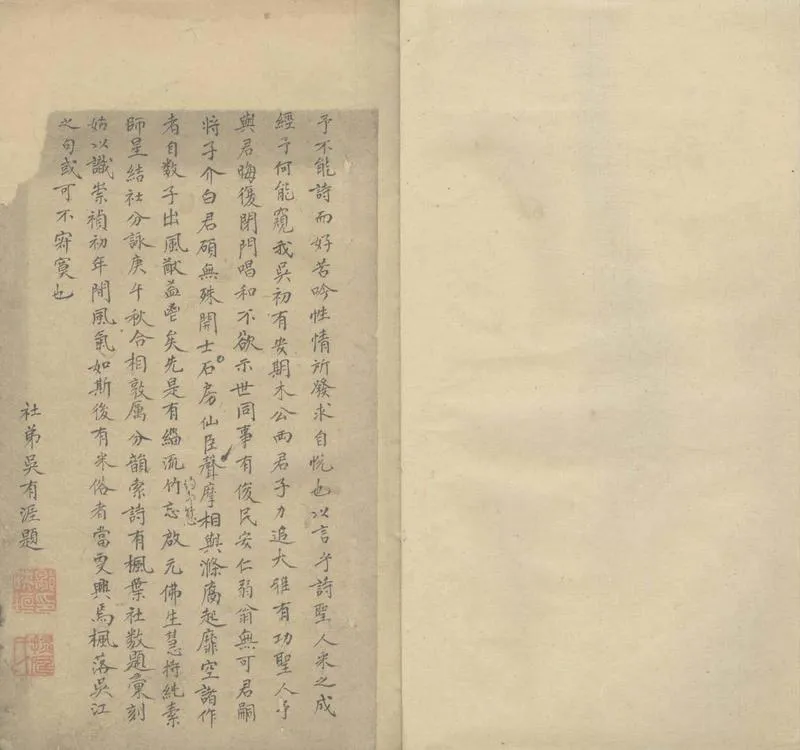 予不能詩而好苦吟性情所發求自悦也以言乎詩聖人采之成
經予何能窺我吳初有安期木公兩君子力追大雅有功聖人予
與君晦復閉門唱和不欲示世同事有俊民安仁弱翁無可君嗣
將子介白君碩無殊開士石房仙臣聲摩相與滌腐起靡空諸作
者自数子出風猷益霅矣先是有緇流竹忘啟元佛生慧持純素
師星結社分詠庚午秋合相敦厲分韻索詩有楓葉社数題彙刻
姑以識崇禎初年間風氣如斯後有采俗者當㪅興焉楓落吳江
之句或可不寂寞也
社弟吳有涯題